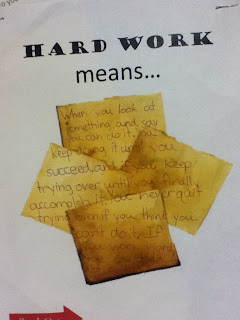 HARD WORK
means...
When you look at
something and say
you can do it. You
keep doing it until you
succeed and you keep
trying over until you finally
accomplish it. You never quit
trying even if you think you
can't do it. If
you